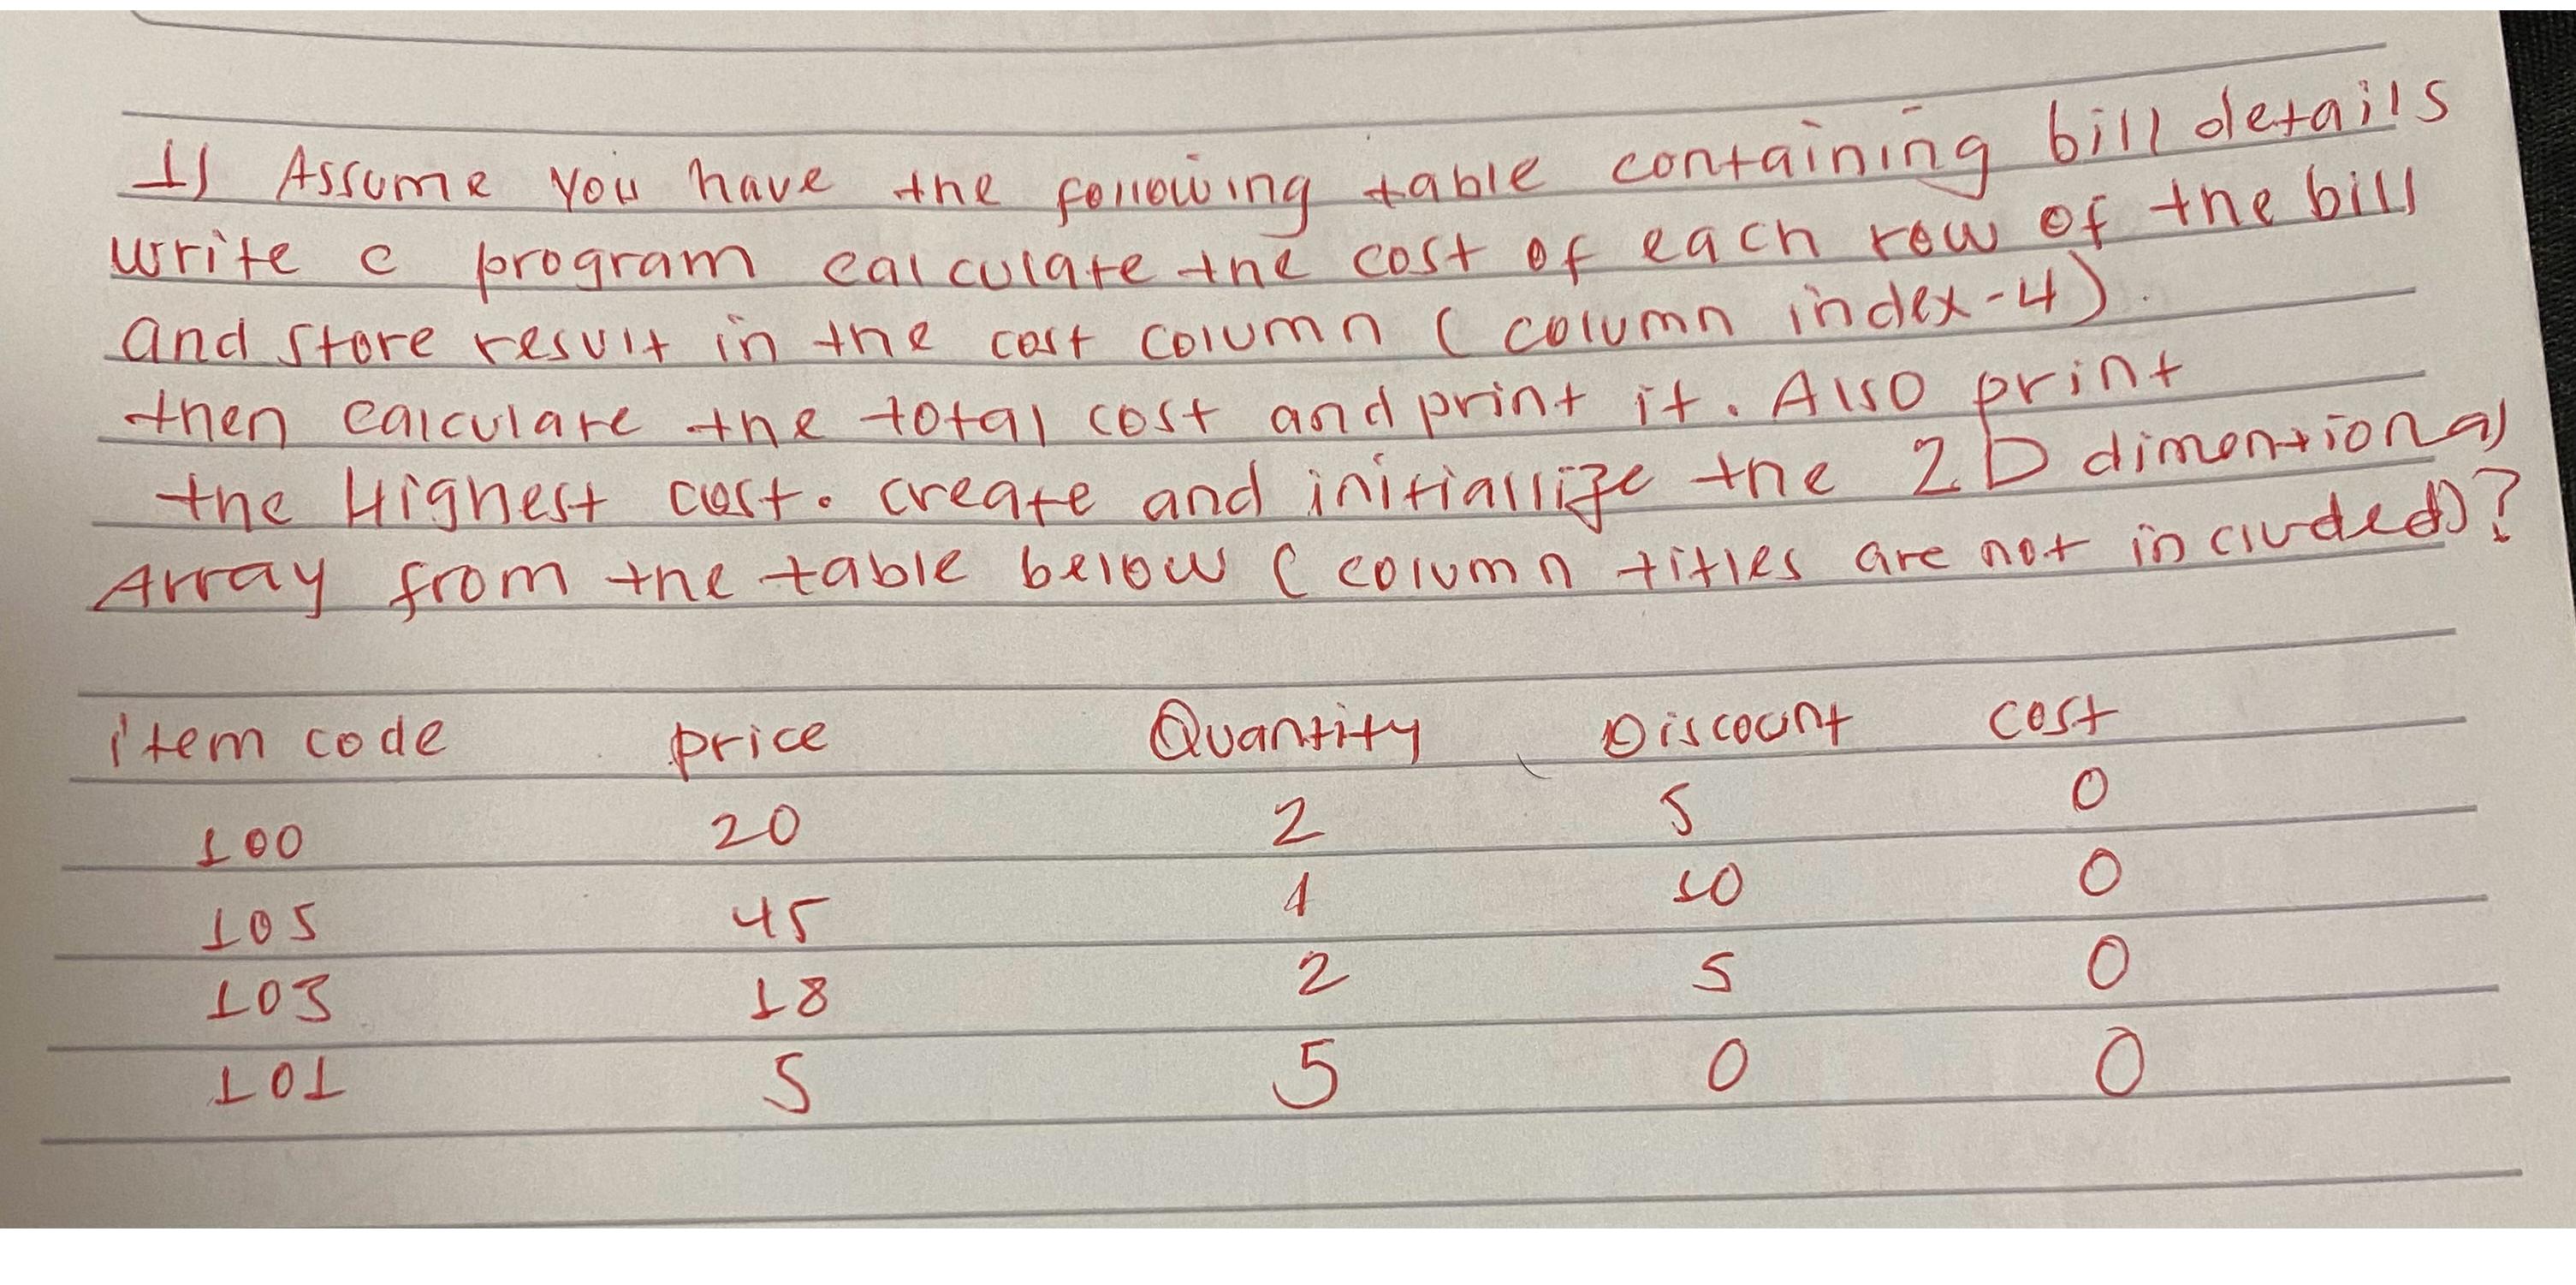 1) Assume you have the following table containing bill details
write c program calculate the cost of each row of the bill
and store result in the cost column (column index-4).
then calculate the total cost and print it. Also print
the Highest cost. create and initiallize the 2D dimentional
Array from the table below (column titles are not included)?
item code price Quantity Discount cost
100 20 2 5 0
105 45 1 10 0
103 18 2 5 0
101 5 5 0 0